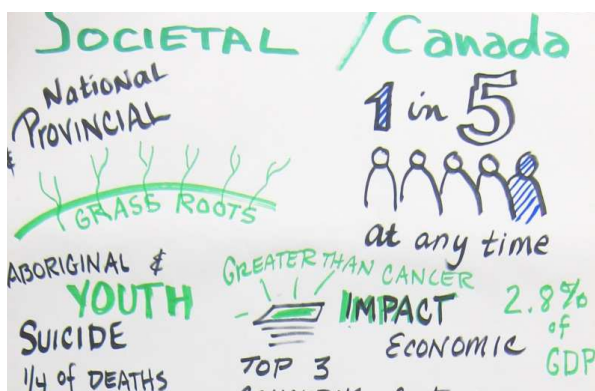 SOCIETAL / Canada
National
& PROVINCIAL
GRASS ROOTS
1 in 5
at any time
ABORIGINAL &
YOUTH
SUICIDE
1/4 of DEATHS
GREATER THAN CANCER
IMPACT
ECONOMIC
2.8%
of
GDP
TOP 3